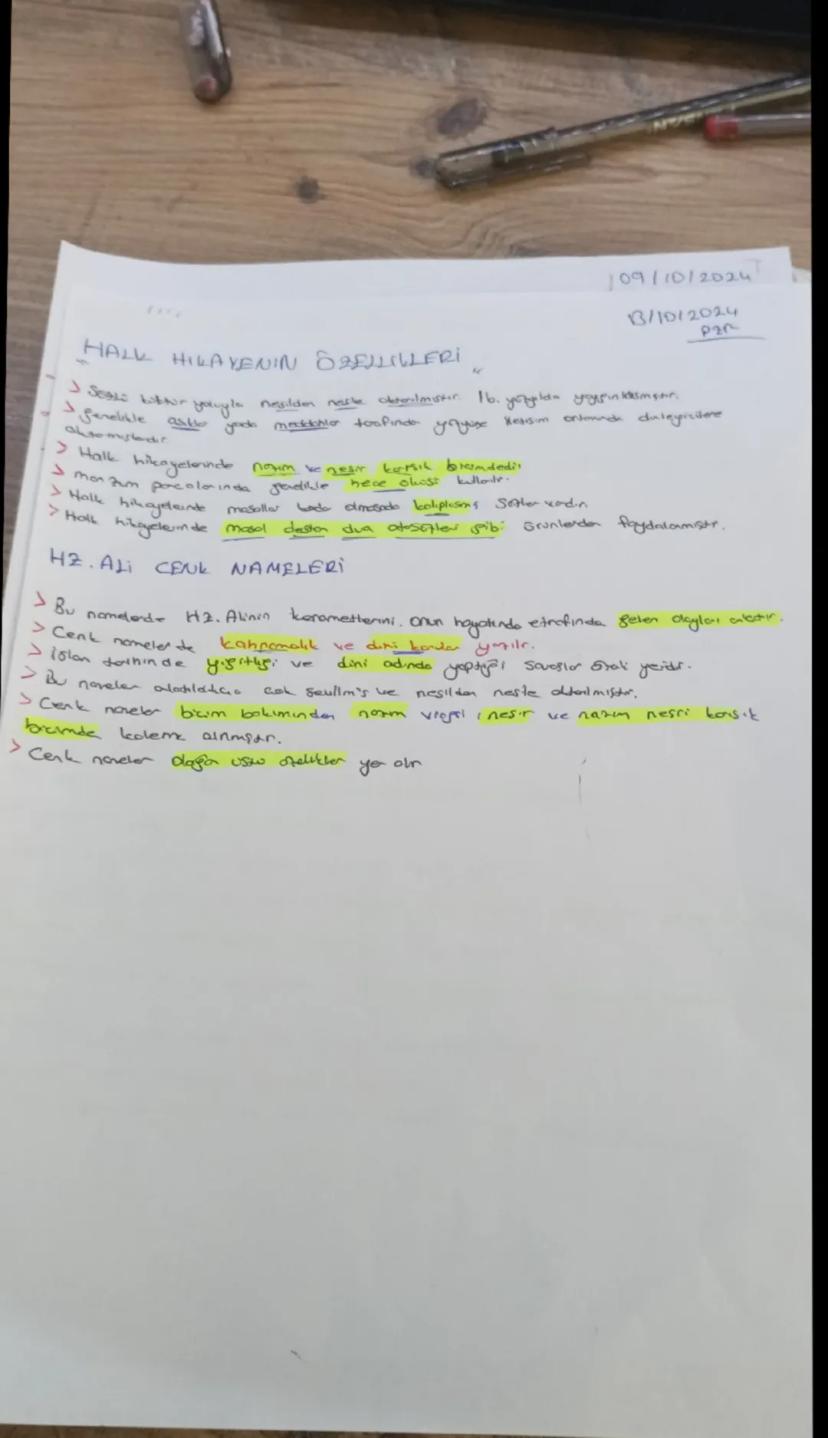 09/10/2024
13/10/2024
PZR
"HALK HİKAYENİN ÖZELLİKLERİ"
> Sözlü kültür yoluyla nesilden nesle aktarılmıştır. 16. yüzyılda yaygınlaşmıştır.
> Genellikle aşıklar yada meddahlar tarafında yüzyüze iletişim ortamında dinleyicilere
aktarmışlardır.
> Halk hikayelerinde nazım ve nesir karışık biçimdedir
> manzum parçalarında genellikle hece ölçüsü kullanılır.
> Halk hikayelerinde masallar kadar olmasada kalıplaşmış sözler vardır.
> Halk hikayelerinde masal destan dua atasözleri gibi ürünlerden faydalanmıştır.
HZ. ALİ CENK NAMELERİ
> Bu namelerde HZ. Alinin kerametlerini, onun hayatında etrafında gelen olayları anlatır.
> Cenk nameler de kahramanlık ve dini konular yazılır.
> İslam tarihinde yiğitliği ve dini adında yaptığı savaşlar yeridir.
> Bu nameler çok sevilmiş ve nesilden nesle aktarılmıştır.
> Cenk nameler biçim bakımından nazım nesir ve nazım nesri karışık
biçimde kaleme alınmıştır.
> Cenk nameler olağan üstü özellikler yer alır